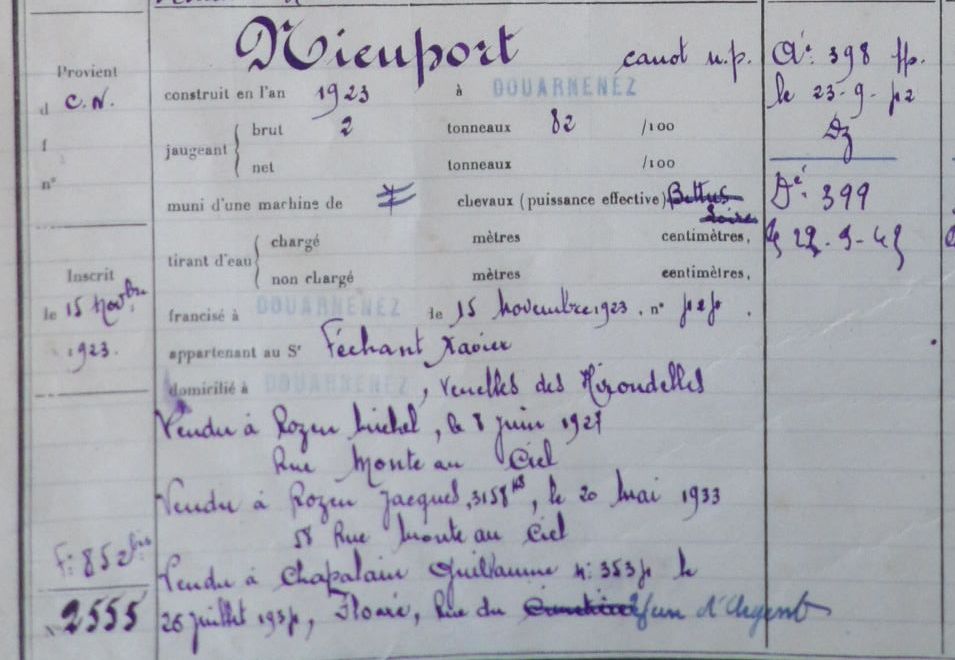 Nieuport canot n.p.
Provient
d C.N.
f
n°
construit en l'an 1923 à DOUARNENEZ
jaugeant
brut 2 tonneaux 82 /100
net tonneaux /100
muni d'une machine de chevaux (puissance effective)
tirant d'eau
chargé mètres centimètres,
non chargé mètres centimètres,
Inscrit
le 15 Novbre
1923.
francisé à DOUARNENEZ le 15 novembre 1923, n°
appartenant au Sr Féchant Xavier
domicilié à DOUARNENEZ, venelles des Hirondelles
Vendu à Rozen Michel, le 8 juin 1927
Rue Monte au Ciel
Vendu à Rozen Jacques, 3158, le 20 Mai 1933
58 Rue Monte au Ciel
F: 852 bis
Vendu à Chapalain Guillaume n: le
2555
26 juillet, Rue du d'Argent
Ae. 398
le 23-9-
Dz
De. 399